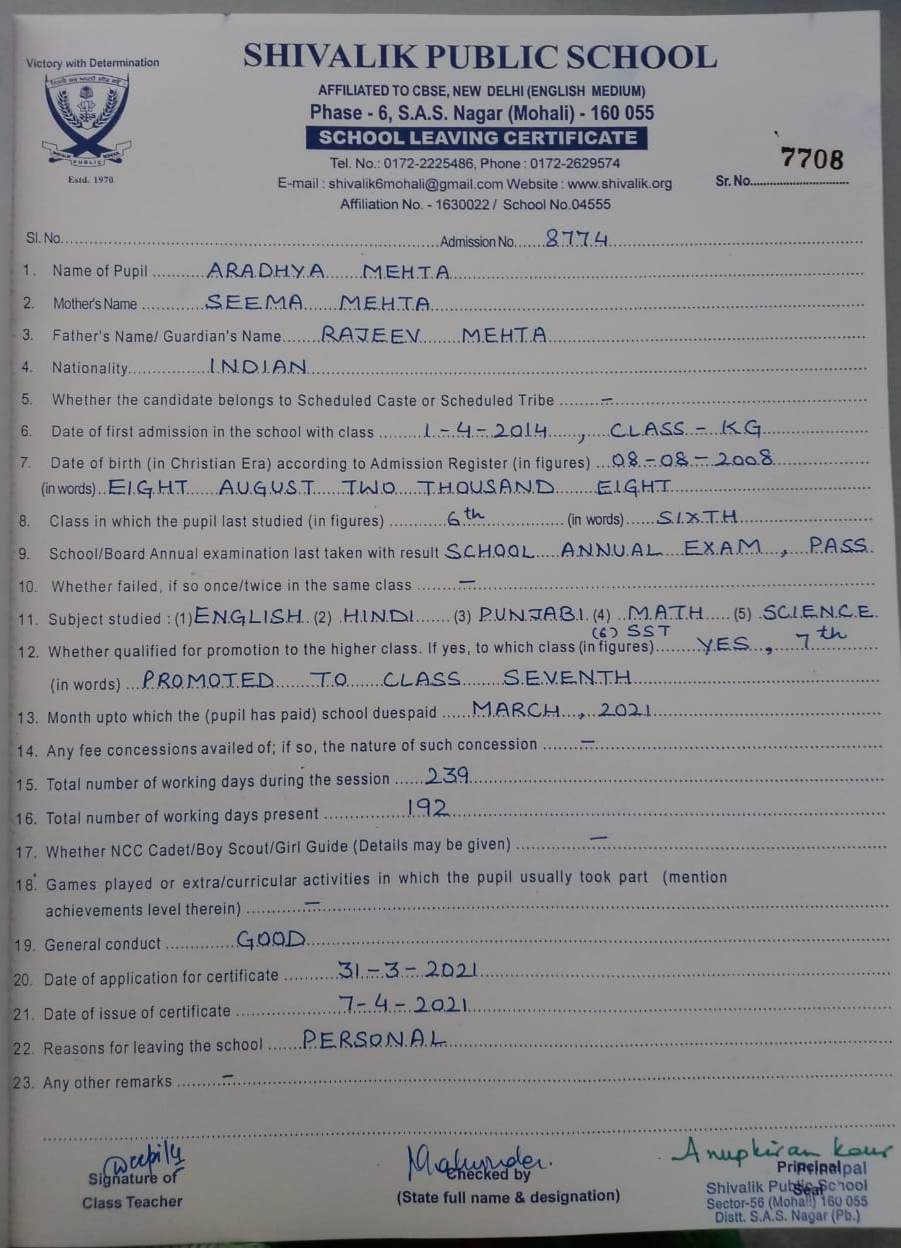 Victory with Determination
SHIVALIK PUBLIC SCHOOL
AFFILIATED TO CBSE, NEW DELHI (ENGLISH MEDIUM)
Phase - 6, S.A.S. Nagar (Mohali) - 160 055
SCHOOL LEAVING CERTIFICATE
PUBLIC
Estd. 1970
Tel. No.: 0172-2225486, Phone : 0172-2629574
E-mail : shivalik6mohali@gmail.com Website : www.shivalik.org
Affiliation No. - 1630022 / School No.04555
Sr. No. 7708
Sl. No. Admission No. 8774
1. Name of Pupil ARADHYA MEHTA
2. Mother's Name SEEMA MEHTA
3. Father's Name/ Guardian's Name RAJEEV MEHTA
4. Nationality INDIAN
5. Whether the candidate belongs to Scheduled Caste or Scheduled Tribe –
6. Date of first admission in the school with class 1-4-2014, CLASS - KG
7. Date of birth (in Christian Era) according to Admission Register (in figures) 08-08-2008
(in words) EIGHT AUGUST TWO THOUSAND EIGHT
8. Class in which the pupil last studied (in figures) 6th (in words) SIXTH
9. School/Board Annual examination last taken with result SCHOOL ANNUAL EXAM, PASS
10. Whether failed, if so once/twice in the same class –
11. Subject studied : (1) ENGLISH (2) HINDI (3) PUNJABI (4) MATH (5) SCIENCE
(6) SST
12. Whether qualified for promotion to the higher class. If yes, to which class (in figures) YES, 7th
(in words) PROMOTED TO CLASS SEVENTH
13. Month upto which the (pupil has paid) school duespaid MARCH, 2021
14. Any fee concessions availed of; if so, the nature of such concession –
15. Total number of working days during the session 239
16. Total number of working days present 192
17. Whether NCC Cadet/Boy Scout/Girl Guide (Details may be given) –
18. Games played or extra/curricular activities in which the pupil usually took part (mention
achievements level therein) –
19. General conduct GOOD
20. Date of application for certificate 31-3-2021
21. Date of issue of certificate 7-4-2021
22. Reasons for leaving the school PERSONAL
23. Any other remarks –
Anupkiran Kaur
Signature of
Class Teacher
Checked by
(State full name & designation)
Principal
Seal
Principal
Shivalik Public School
Sector-56 (Mohali) 160 055
Distt. S.A.S. Nagar (Pb.)